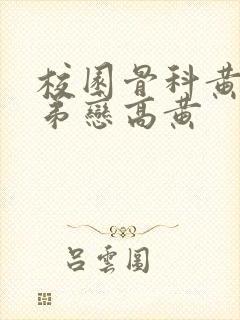 校園骨科黃
弟戀高黃
呂雲圓